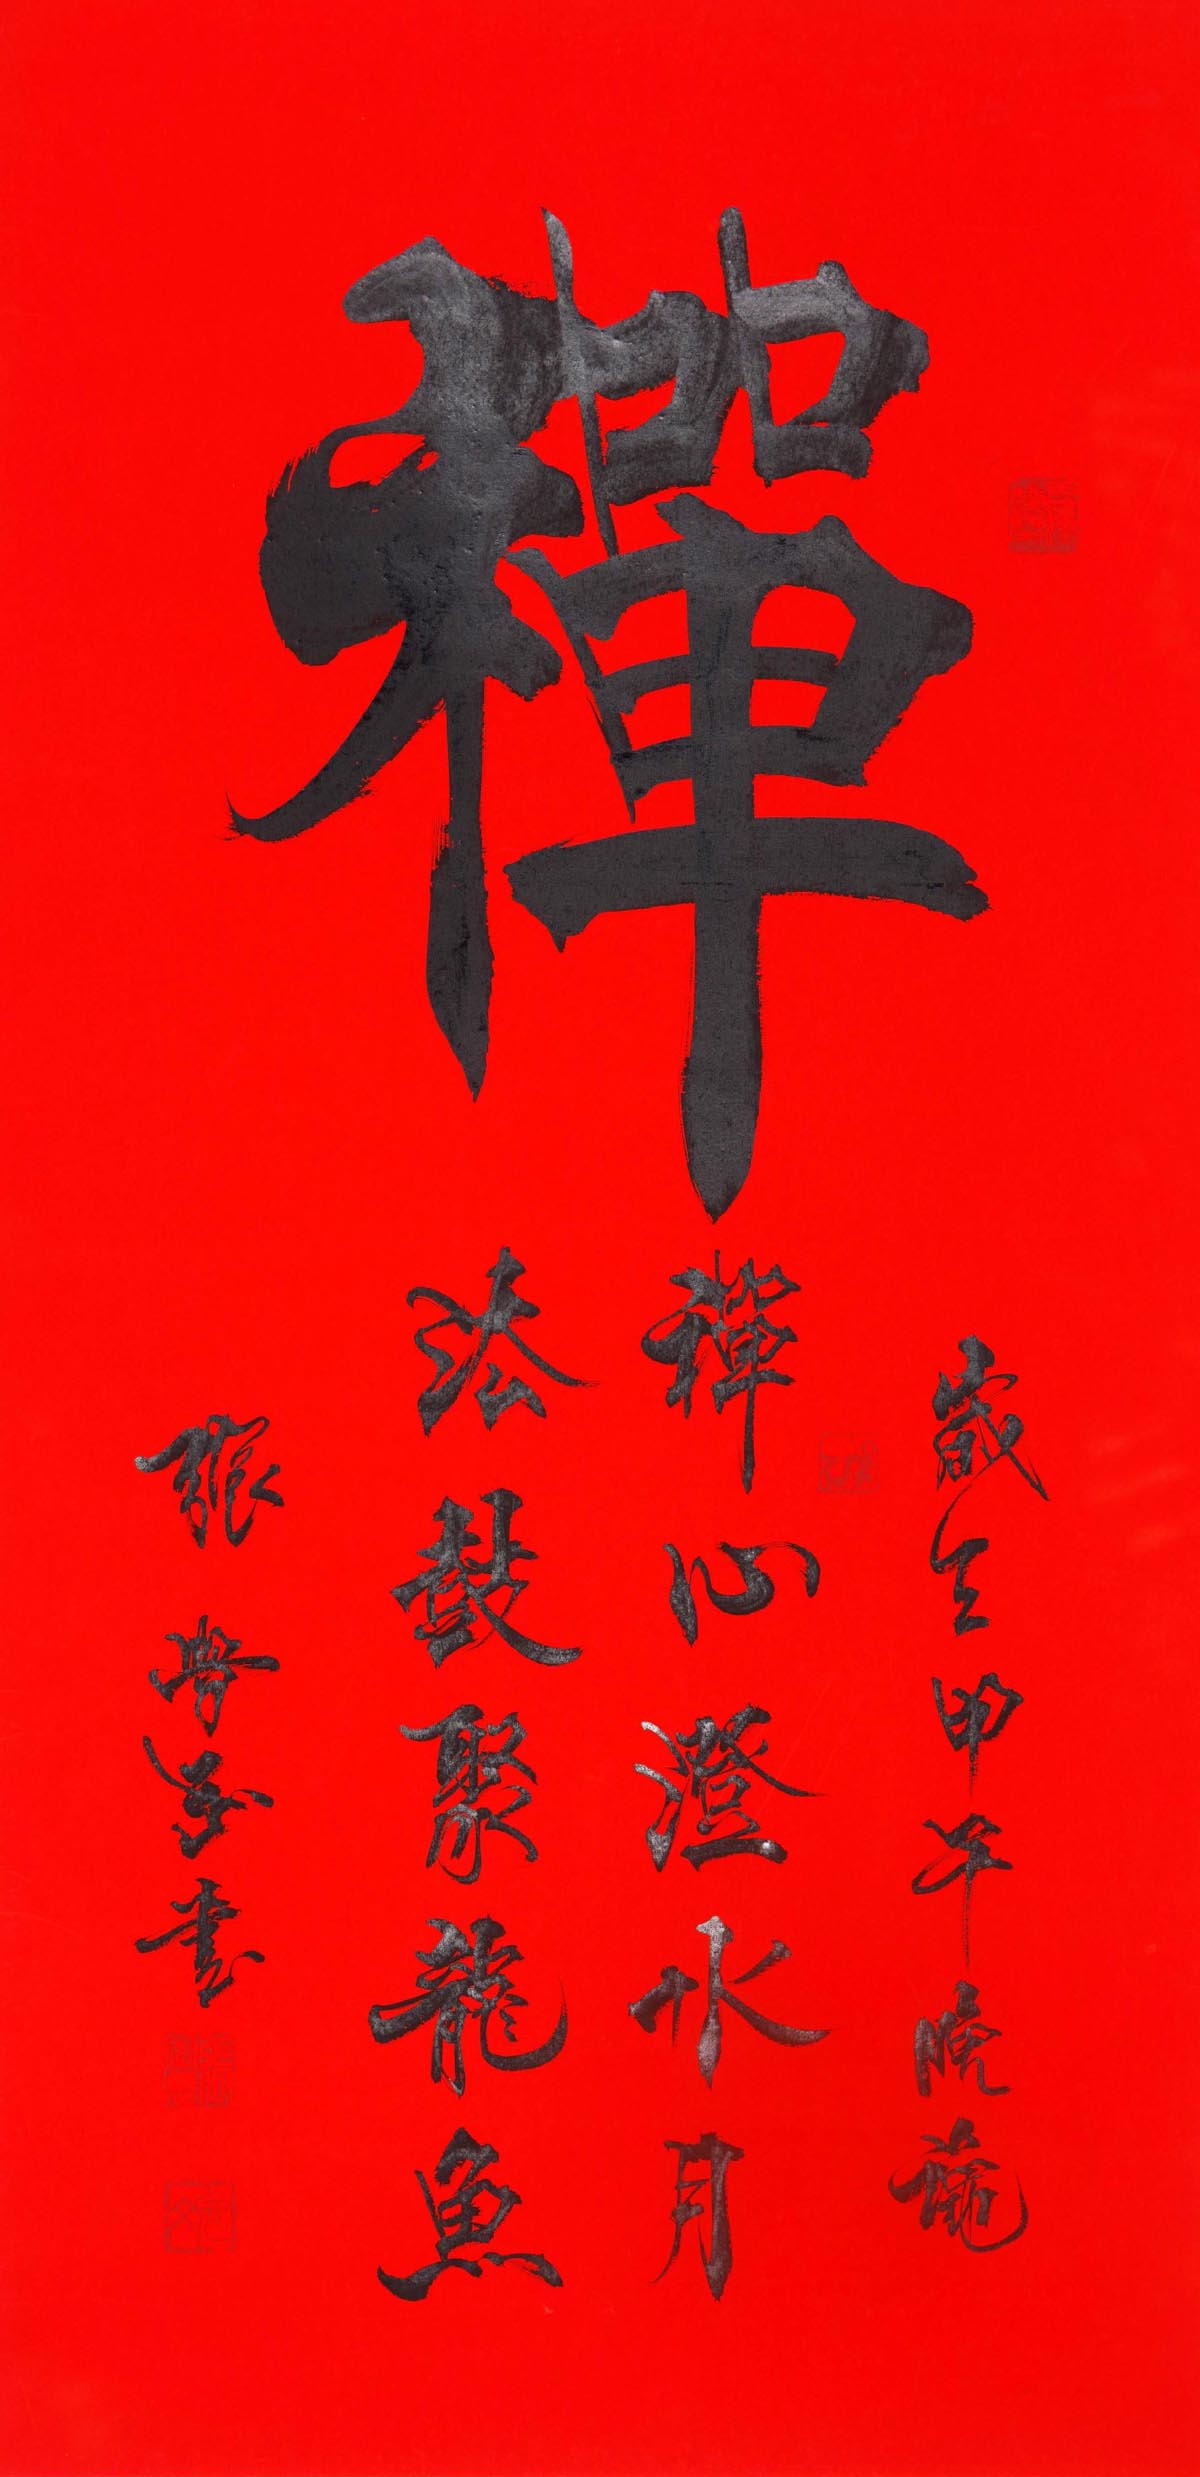 禪
歲在甲午晚龝
禪心澄水月
法鼓聚龍魚
張學書